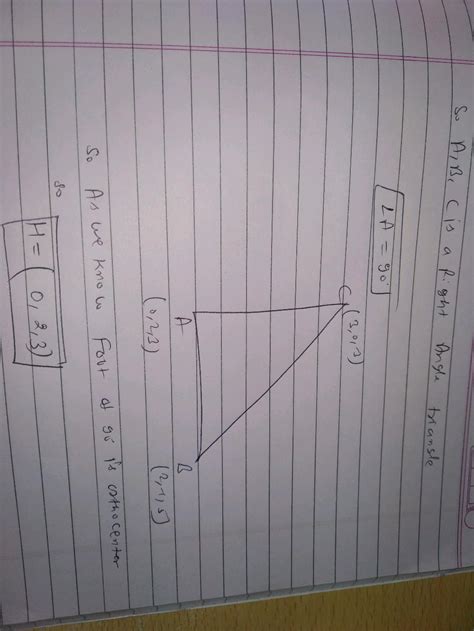 So A, B, C is a Right Angle triangle
∠A = 90°
C (3,0,1)
A
(0,2,3)
B
(2,1,5)
So As we know foot of 90° is orthocenter
so
H = (0,2,3)